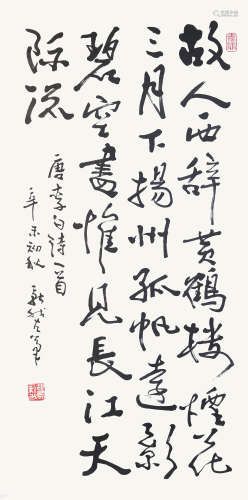 故人西辞黄鶴楼煙花
三月下揚州孤帆遠影
碧空盡惟見長江天
际流
唐李白诗一首
辛未初秋